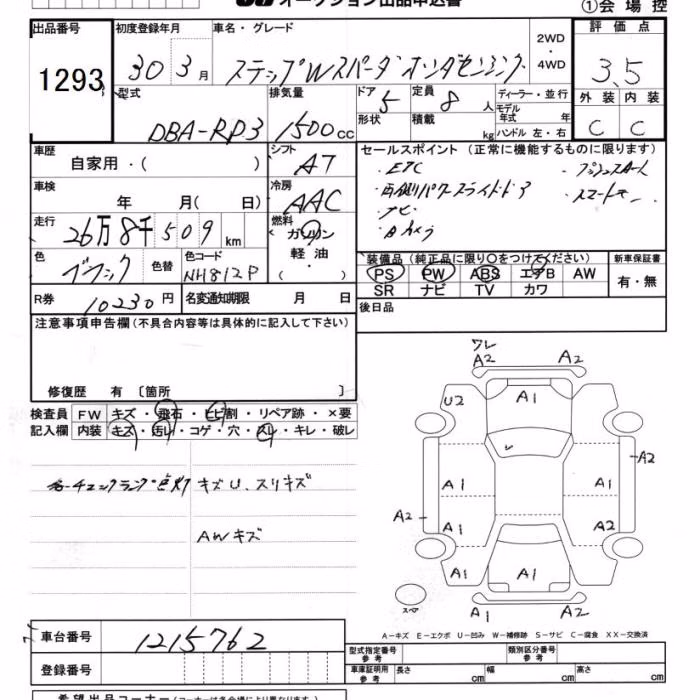 オークション出品申込書
①会場控
出品番号
1293
初度登録年月
30 3 月
車名・グレード
ステップWスパーダ ホンダセンシング
2WD
・
4WD
評価点
3.5
外装 内装
C C
型式
DBA-RP3
排気量
1500 cc
ドア 5
形状
定員 8 人
積載 kg
ディーラー・並行
モデル年式 年
ハンドル 左・右
車歴
自家用・( )
シフト
AT
セールスポイント (正常に機能するものに限ります)
・ETC
・プッシュスタート
・両側パワースライドドア
・スマートキー
・ナビ
・Bカメラ
車検
年 月( 日)
冷房
AAC
走行
26万8千509 km
燃料
ガソリン
軽油
・( )
色
ブラック
色替
色コード
NH812P
装備品 (純正品に限り〇をつけてください)
PS PW ABS エアB AW
SR ナビ TV カワ
新車保証書
有・無
R券
10230 円
名変通知期限 月 日
後日品
注意事項申告欄 (不具合内容等は具体的に記入して下さい)
修復歴 有 〔箇所 〕
検査員
記入欄
FW キズ・飛石・ヒビ割・リペア跡・×要
内装 キズ・汚レ・コゲ・穴・スレ・キレ・破レ
チェックランプ点灯
キズU、スリキズ
AWキズ
ワレ
A2 A2
U2 A1
A1 A1 A2
A2 A1 A2
A1 A1 A1
スペア
A1 A2
A-キズ E-エクボ U-凹み W-補修跡 S-サビ C-腐食 XX-交換済
車台番号
1215762
登録番号
型式指定番号
参考
類別区分番号
参考
車庫証明用
参考
長さ cm
幅 cm
高さ cm
希望出品コーナー (コーナーは各会場により異なります)